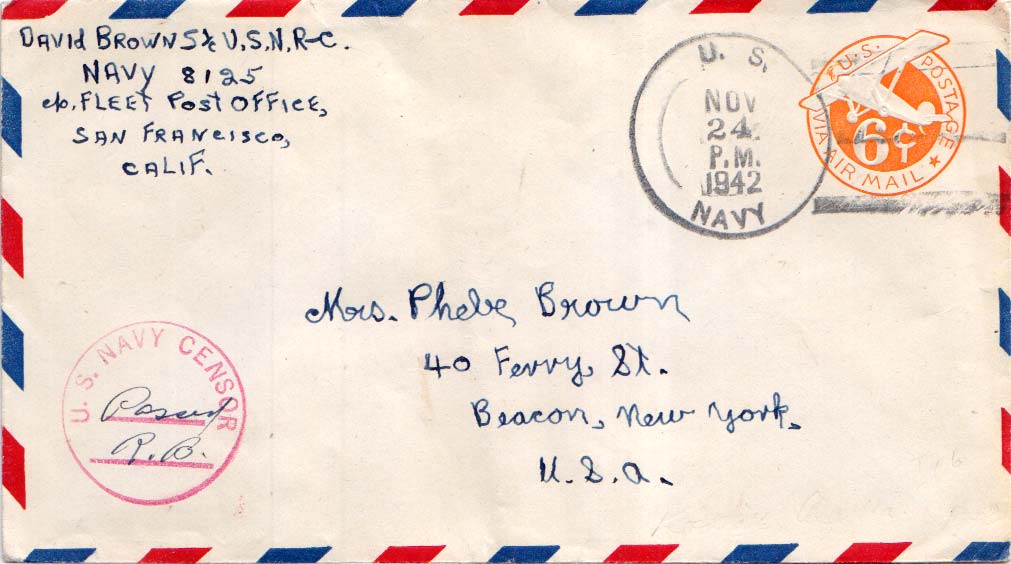 DAVID BROWN S 1/c U.S.N.R-C.
NAVY 8125
c/o. FLEET POST OFFICE,
SAN FRANCISCO,
CALIF.
U. S.
NOV
24
P.M.
1942
NAVY
U.S. POSTAGE
6¢
VIA AIR MAIL
Mrs. Phebe Brown
40 Ferry St.
Beacon, New York.
U.S.A.
U. S. NAVY CENSOR
Passed
R.B.